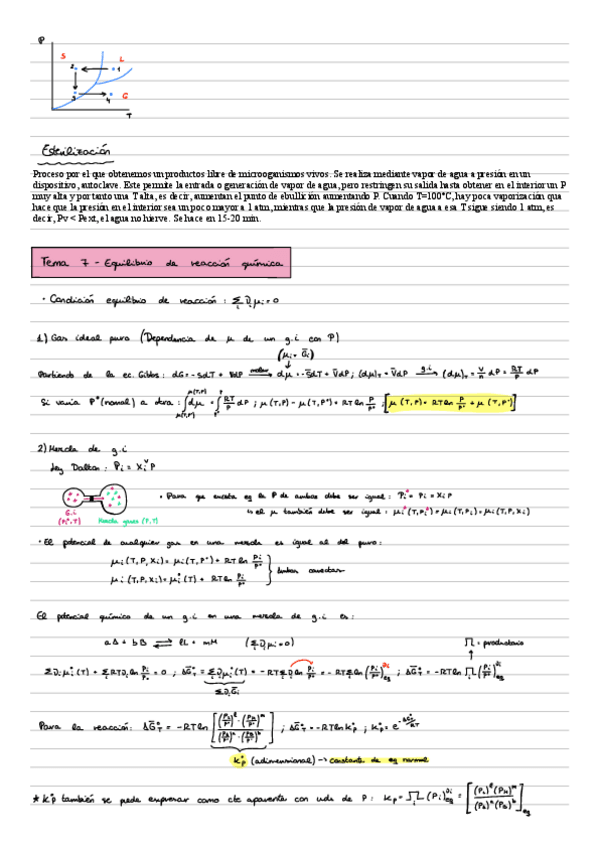 P
S
L
2
1
3
4
G
T
Esterilización
Proceso por el que obtenemos un productos libre de microoganismos vivos. Se realiza mediante vapor de agua a presión en un
dispositivo, autoclave. Este permite la entrada o generación de vapor de agua, pero restringen su salida hasta obtener en el interior un P
muy alta y por tanto una T alta, es decir, aumentan el punto de ebullición aumentando P. Cuando T=100°C, hay poca vaporización que
hace que la presión en el interior sea un poco mayor a 1 atm, mientras que la presión de vapor de agua a esa T sigue siendo 1 atm, es
decir, Pv < Pext, el agua no hierve. Se hace en 15-20 min.
Tema 7 - Equilibrio de reacción química
· Condición equilibrio de reacción : Σ νi μi = 0
1) Gas ideal puro (Dependencia de μ de un g.i con P)
(μi = Ḡi)
Partiendo de la ec. Gibbs : dG = - SdT + VdP → dμ = - S̄dT + V̄dP ; (dμ)T = V̄dP → (dμ)T = V/n dP = RT/P dP
Si varía P°(normal) a otra : ∫dμ = ∫ RT/P dP ; μ(T,P) - μ(T,P°) = RT ln P/P° ; [μ(T,P) = RT ln P/P° + μ(T,P°)]
2) Mezcla de g.i
Ley Dalton : Pi = Xi P
· Para que exista eq la P de ambas debe ser igual : Pi* = Pi = Xi P
G.i
(Pi*,T)
Mezcla gases (P,T)
el μ también debe ser igual : μi*(T,Pi*) = μi(T,Pi) = μi(T,P,Xi)
· El potencial de cualquier gas en una mezcla es igual al del puro :
μi(T,P,Xi) = μi(T,P°) + RT ln Pi/P°
μi(T,P,Xi) = μi°(T) + RT ln Pi/P°
Ambas correctas
El potencial químico de un g.i en una mezcla de g.i es :
aA + bB ⇌ lL + mM (Σ νi μi = 0)
Π = productorio
Σ νi μi°(T) + Σ RT νi ln Pi/P° = 0 ; ΔG°T = Σ νi μi°(T) = - RT Σ νi ln Pi/P° = - RT Σ ln (Pi/P°)^νi eq ; ΔG°T = - RT ln Π (Pi/P°)^νi eq
Σ νi Ḡi
Para la reacción : ΔG°T = - RT ln [(PL/P°)^l · (PM/P°)^m / (PA/P°)^a · (PB/P°)^b] ; ΔG°T = - RT ln K°p ; K°p = e^-ΔG°/RT
K°p (adimensional) → constante de eq normal
* K°p también se puede expresar como cte aparente con uds de P : Kp = Π (Pi)^νi eq = [(PL)^l (PM)^m / (PA)^a (PB)^b] eq